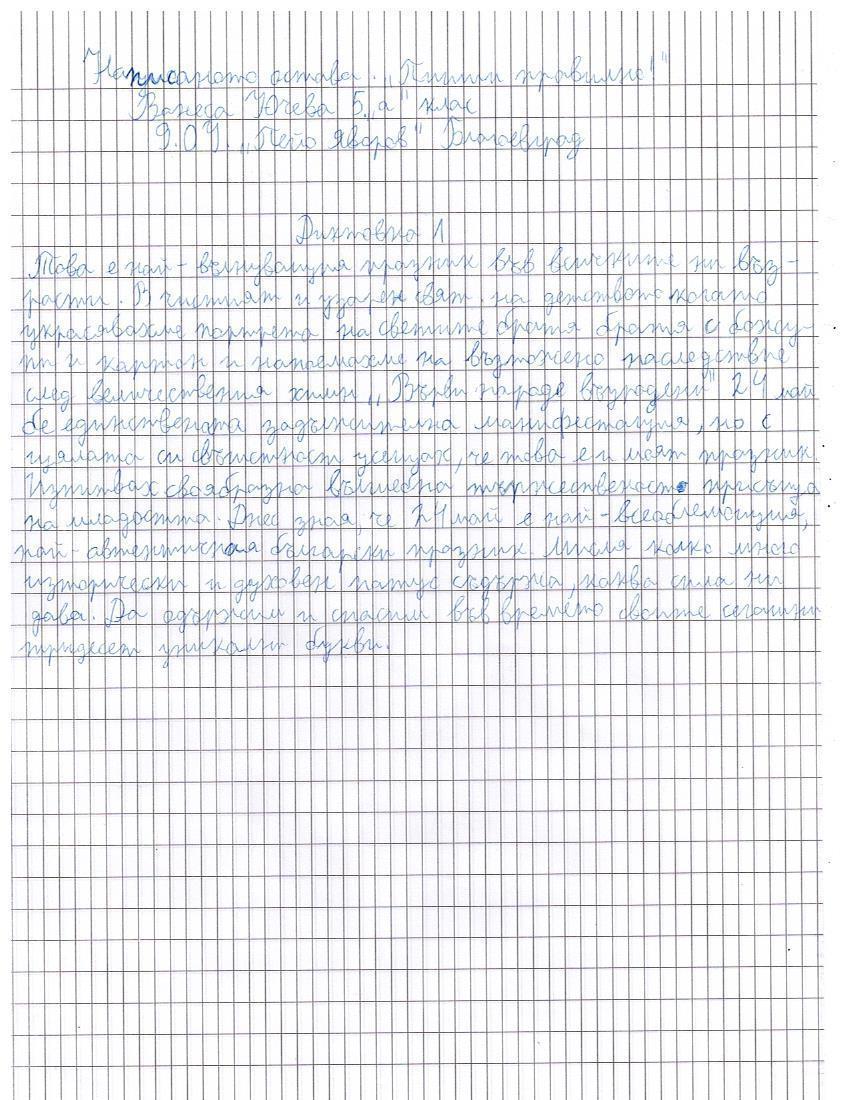 Написаното остава. „Пиши правилно!"
Ванеса Ючева 5 „а" клас
9.ОУ. „Пейо Яворов" Благоевград
Диктовка 1
Това е най-вълнуващия празник във всичките ни въз-
расти. В чистият и узарен свят на детството когато
украсявахме портрета на светите братя братя с божу-
ри и картон и напаемахме на възложено наследствие
след величествения химн „Върви народе възродени" 24 май
бе единствената задължителна манифестация, но с
цялата си същтност усещах, че това е и моят празник.
Изпитвах своябразна вълшебна тържественост присъща
на младостта. Днес зная, че 24 май е най-всеобемащия,
най-автентичния български празник. Мисля колко много
изторически и духовен патус съдържа, каква сила ни
дава. Да одържим и спасим във времето своите сегашни
тридесет уникални букви.